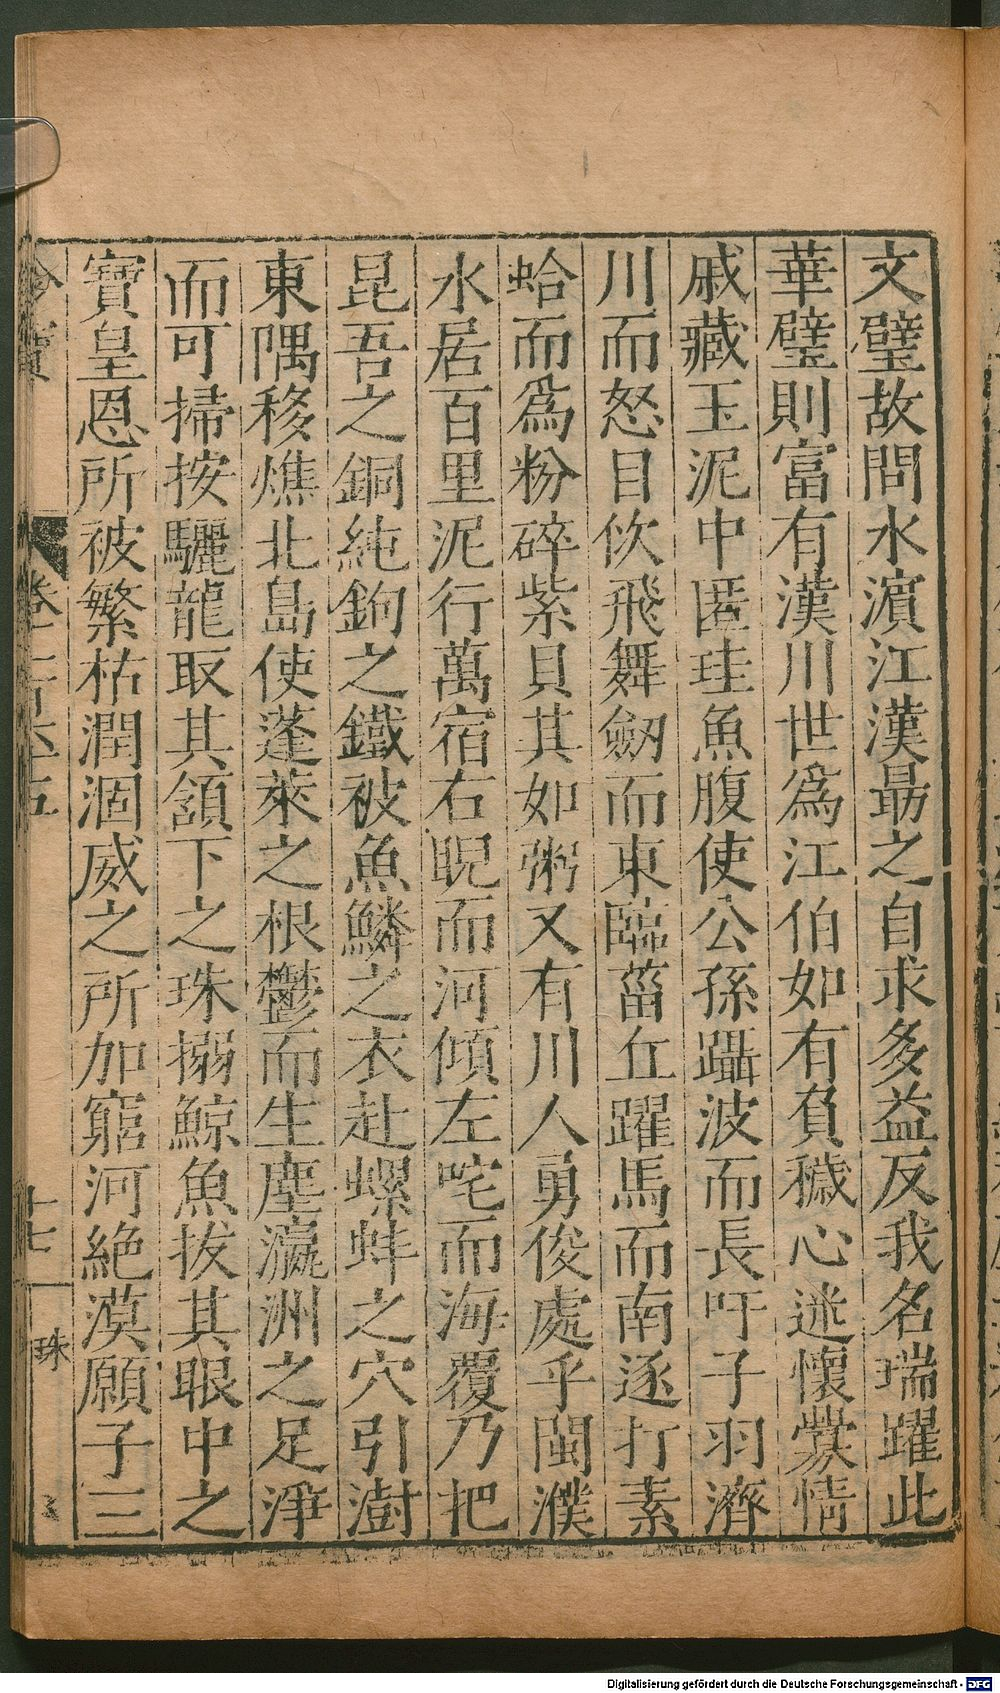 文璧故問水濵江漢朂之自求多益反我名瑞躍此
華璧則富有漢川世爲江伯如有負穢心迷懷黨情
戚藏玉泥中匿珪魚腹使公孫躡波而長吁子羽濟
川而怒目佽飛舞劒而東臨菑丘躍馬而南逐打素
蛤而爲粉碎紫貝其如粥又有川人勇俊處乎閩濮
水居百里泥行萬宿右睨而河傾左咤而海覆乃把
昆吾之銅純鉤之鐵被魚鱗之衣赴螺蚌之穴引澍
東隅移燋北島使蓬萊之根鬱而生塵瀛洲之足淨
而可掃按驪龍取其頷下之珠搦鯨魚拔其眼中之
寶皇恩所被繁枯潤涸威之所加窮河絶漠願子三
卷二百六五
十七
珠
Digitalisierung gefördert durch die Deutsche Forschungsgemeinschaft - DFG